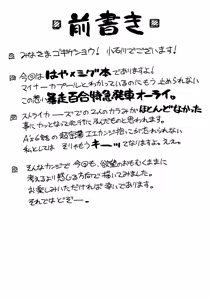 前書き
みなさまゴキゲンヨウ! 小石川でございます!
今回ははや×シグ本でありますよ!
マイナーカプールとわかっているのにもう止められない
この思い暴走百合特急発車オーライ。
ストライカーズでの2人のカラミがほとんどなかった
事にカッとなって
A's6話の超密着エエカンジ抱っこが忘れられない
私としては そりゃもうキーッてなりますよ。ええ。
そんなカンジで今回も、欲望のおもむくままに
考えるより感じる方向で描いてみました。
お楽しみいただければ幸いであります。
それではどぞー。